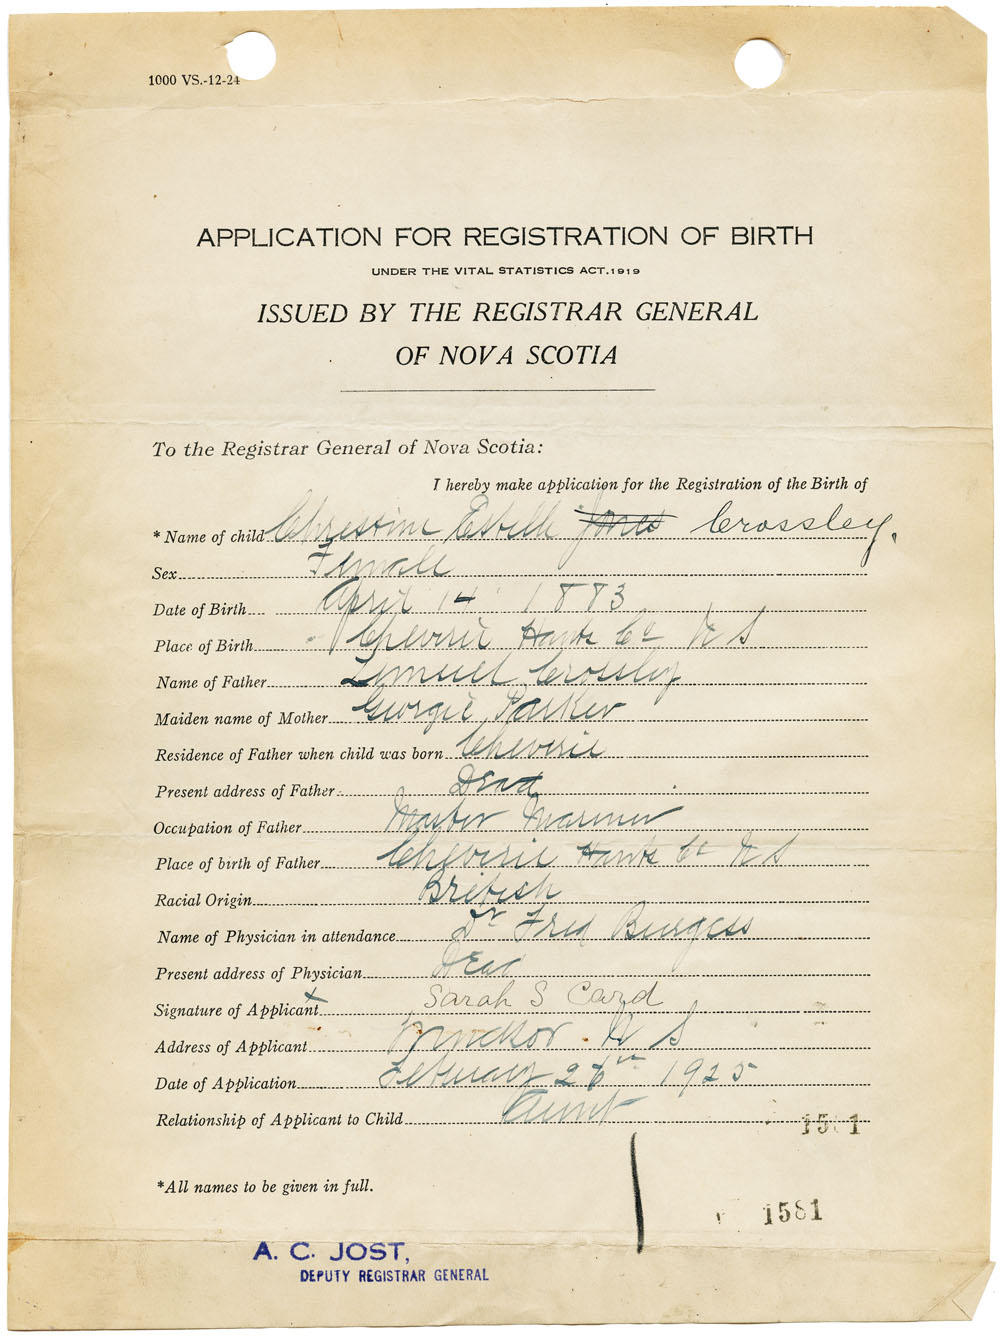 1000 VS.-12-24
APPLICATION FOR REGISTRATION OF BIRTH
UNDER THE VITAL STATISTICS ACT.1919
ISSUED BY THE REGISTRAR GENERAL
OF NOVA SCOTIA
To the Registrar General of Nova Scotia:
I hereby make application for the Registration of the Birth of
* Name of child Christine Estelle Jones Crossley.
Sex Female
Date of Birth April 14 1883
Place of Birth Cheverie Hants Co N S
Name of Father Lemuel Crossley
Maiden name of Mother Georgie Parker
Residence of Father when child was born Cheverie
Present address of Father Dead
Occupation of Father Master Mariner
Place of birth of Father Cheverie Hants Co N S
Racial Origin British
Name of Physician in attendance Dr Fred Burgess
Present address of Physician Dead
Signature of Applicant x Sarah S Card
Address of Applicant Windsor N S
Date of Application February 26th 1925
Relationship of Applicant to Child Aunt
1581
*All names to be given in full.
1581
A. C. JOST,
DEPUTY REGISTRAR GENERAL